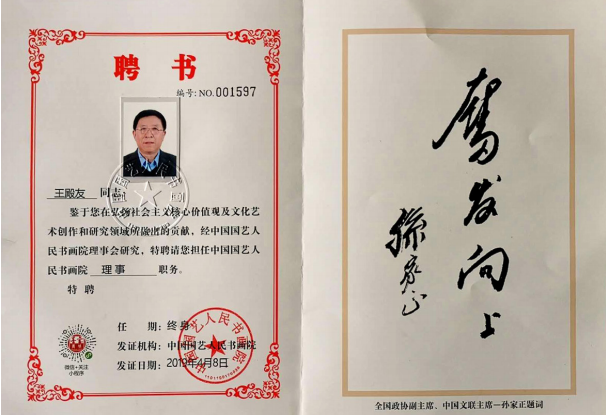 聘书
编号:NO.001597
王殿友 同志
鉴于您在弘扬社会主义核心价值观及文化艺
术创作和研究领域所做出的贡献，经中国国艺人
民书画院理事会研究，特聘请您担任中国国艺人
民书画院 理事 职务。
特聘
任 期：终身
发证机构：中国国艺人民书画院
发证日期：2019年4月8日
微信·关注
小程序
中国国艺人民书画院
奋发向上
孙家正
全国政协副主席、中国文联主席—孙家正题词